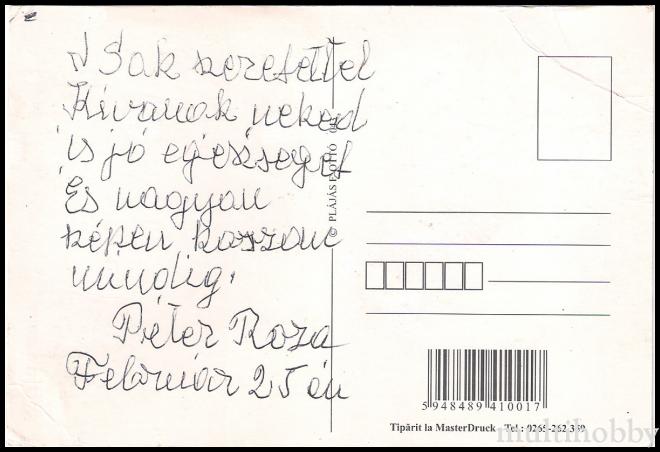 Csak szeretettel
Kivanok neked
is jó egészséget
És nagyon
szépen koszone
mindig.
Péter Roza
Február 25 én
© PLÁJÁS
5 948489 410017
Tipărit la MasterDruck - Tel.: 0265-262.359
multihobby